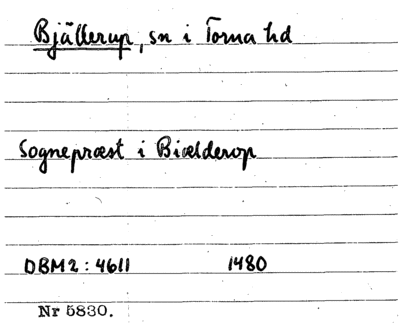 Bjällerup, sn i Torna hd
Sognepræst i Biælderop
DBM2: 4611 1480
Nr 5830.